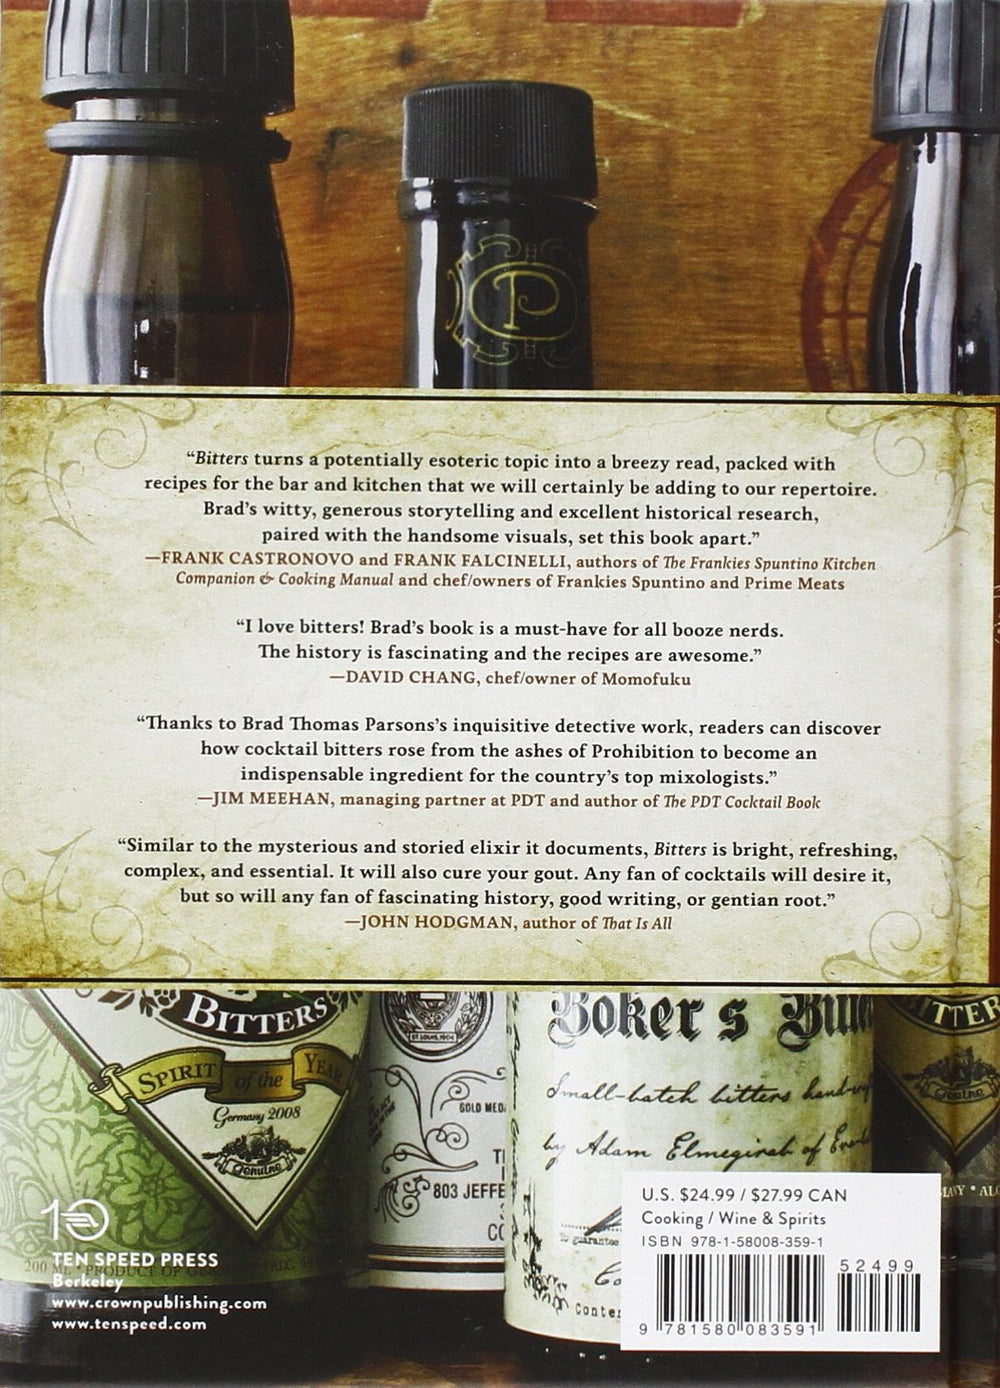 P
“Bitters turns a potentially esoteric topic into a breezy read, packed with
recipes for the bar and kitchen that we will certainly be adding to our repertoire.
Brad’s witty, generous storytelling and excellent historical research,
paired with the handsome visuals, set this book apart.”
—FRANK CASTRONOVO and FRANK FALCINELLI, authors of The Frankies Spuntino Kitchen
Companion & Cooking Manual and chef/owners of Frankies Spuntino and Prime Meats
“I love bitters! Brad’s book is a must-have for all booze nerds.
The history is fascinating and the recipes are awesome.”
—DAVID CHANG, chef/owner of Momofuku
“Thanks to Brad Thomas Parsons’s inquisitive detective work, readers can discover
how cocktail bitters rose from the ashes of Prohibition to become an
indispensable ingredient for the country’s top mixologists.”
—JIM MEEHAN, managing partner at PDT and author of The PDT Cocktail Book
“Similar to the mysterious and storied elixir it documents, Bitters is bright, refreshing,
complex, and essential. It will also cure your gout. Any fan of cocktails will desire it,
but so will any fan of fascinating history, good writing, or gentian root.”
—JOHN HODGMAN, author of That Is All
BITTERS
SPIRIT of the YEAR
Germany 2008
Genuine
ST. LOUIS, 1904
GOLD MED
803 JEFFE
CO
Boker's
Small-batch bitters
by Adam Elmegirab of
To guarantee
Co
Conten
TTER
Genuine
200 ML PRODUCT OF
10
TEN SPEED PRESS
Berkeley
www.crownpublishing.com
www.tenspeed.com
U.S. $24.99 / $27.99 CAN
Cooking / Wine & Spirits
ISBN 978-1-58008-359-1
52499
9 781580 083591